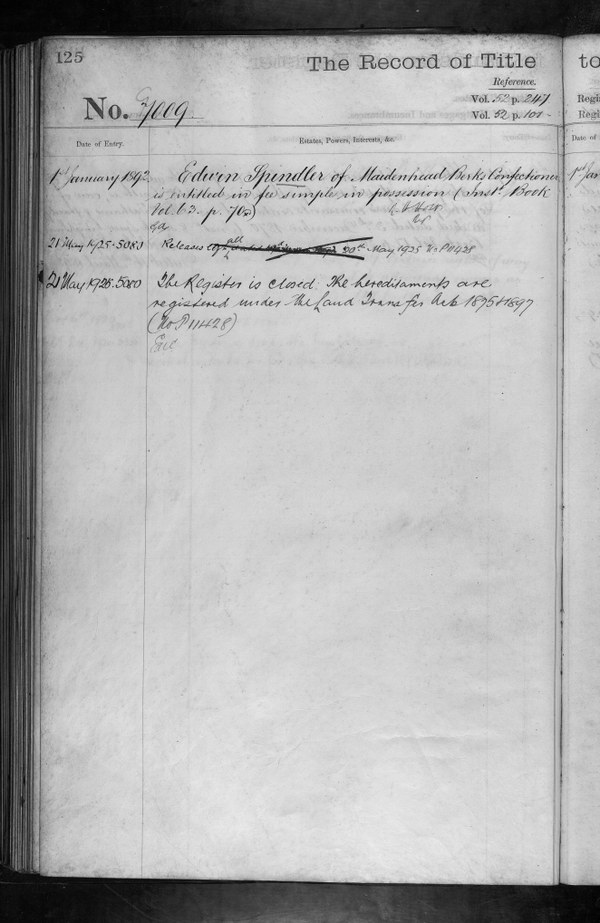 125
The Record of Title
to
Reference.
No. 7009.
Vol. 52 p. 247
Vol. 52 p. 101
Regi
Regi
Date of Entry.
Estates, Powers, Interests, &c.
Date of
1st January 1892
Edwin Spindler of Maidenhead Berks Confectioner
1st Jan
is intitled in fee simple in possession (Inst. Book
Vol. 62. p. 762)
21 May 1925. 5080
Releases all 20th May 1925 No P11428
21 May 1925. 5080
The Register is closed. The hereditaments are
registered under the Land Transfer Acts 1875 & 1897
(No P 11428)